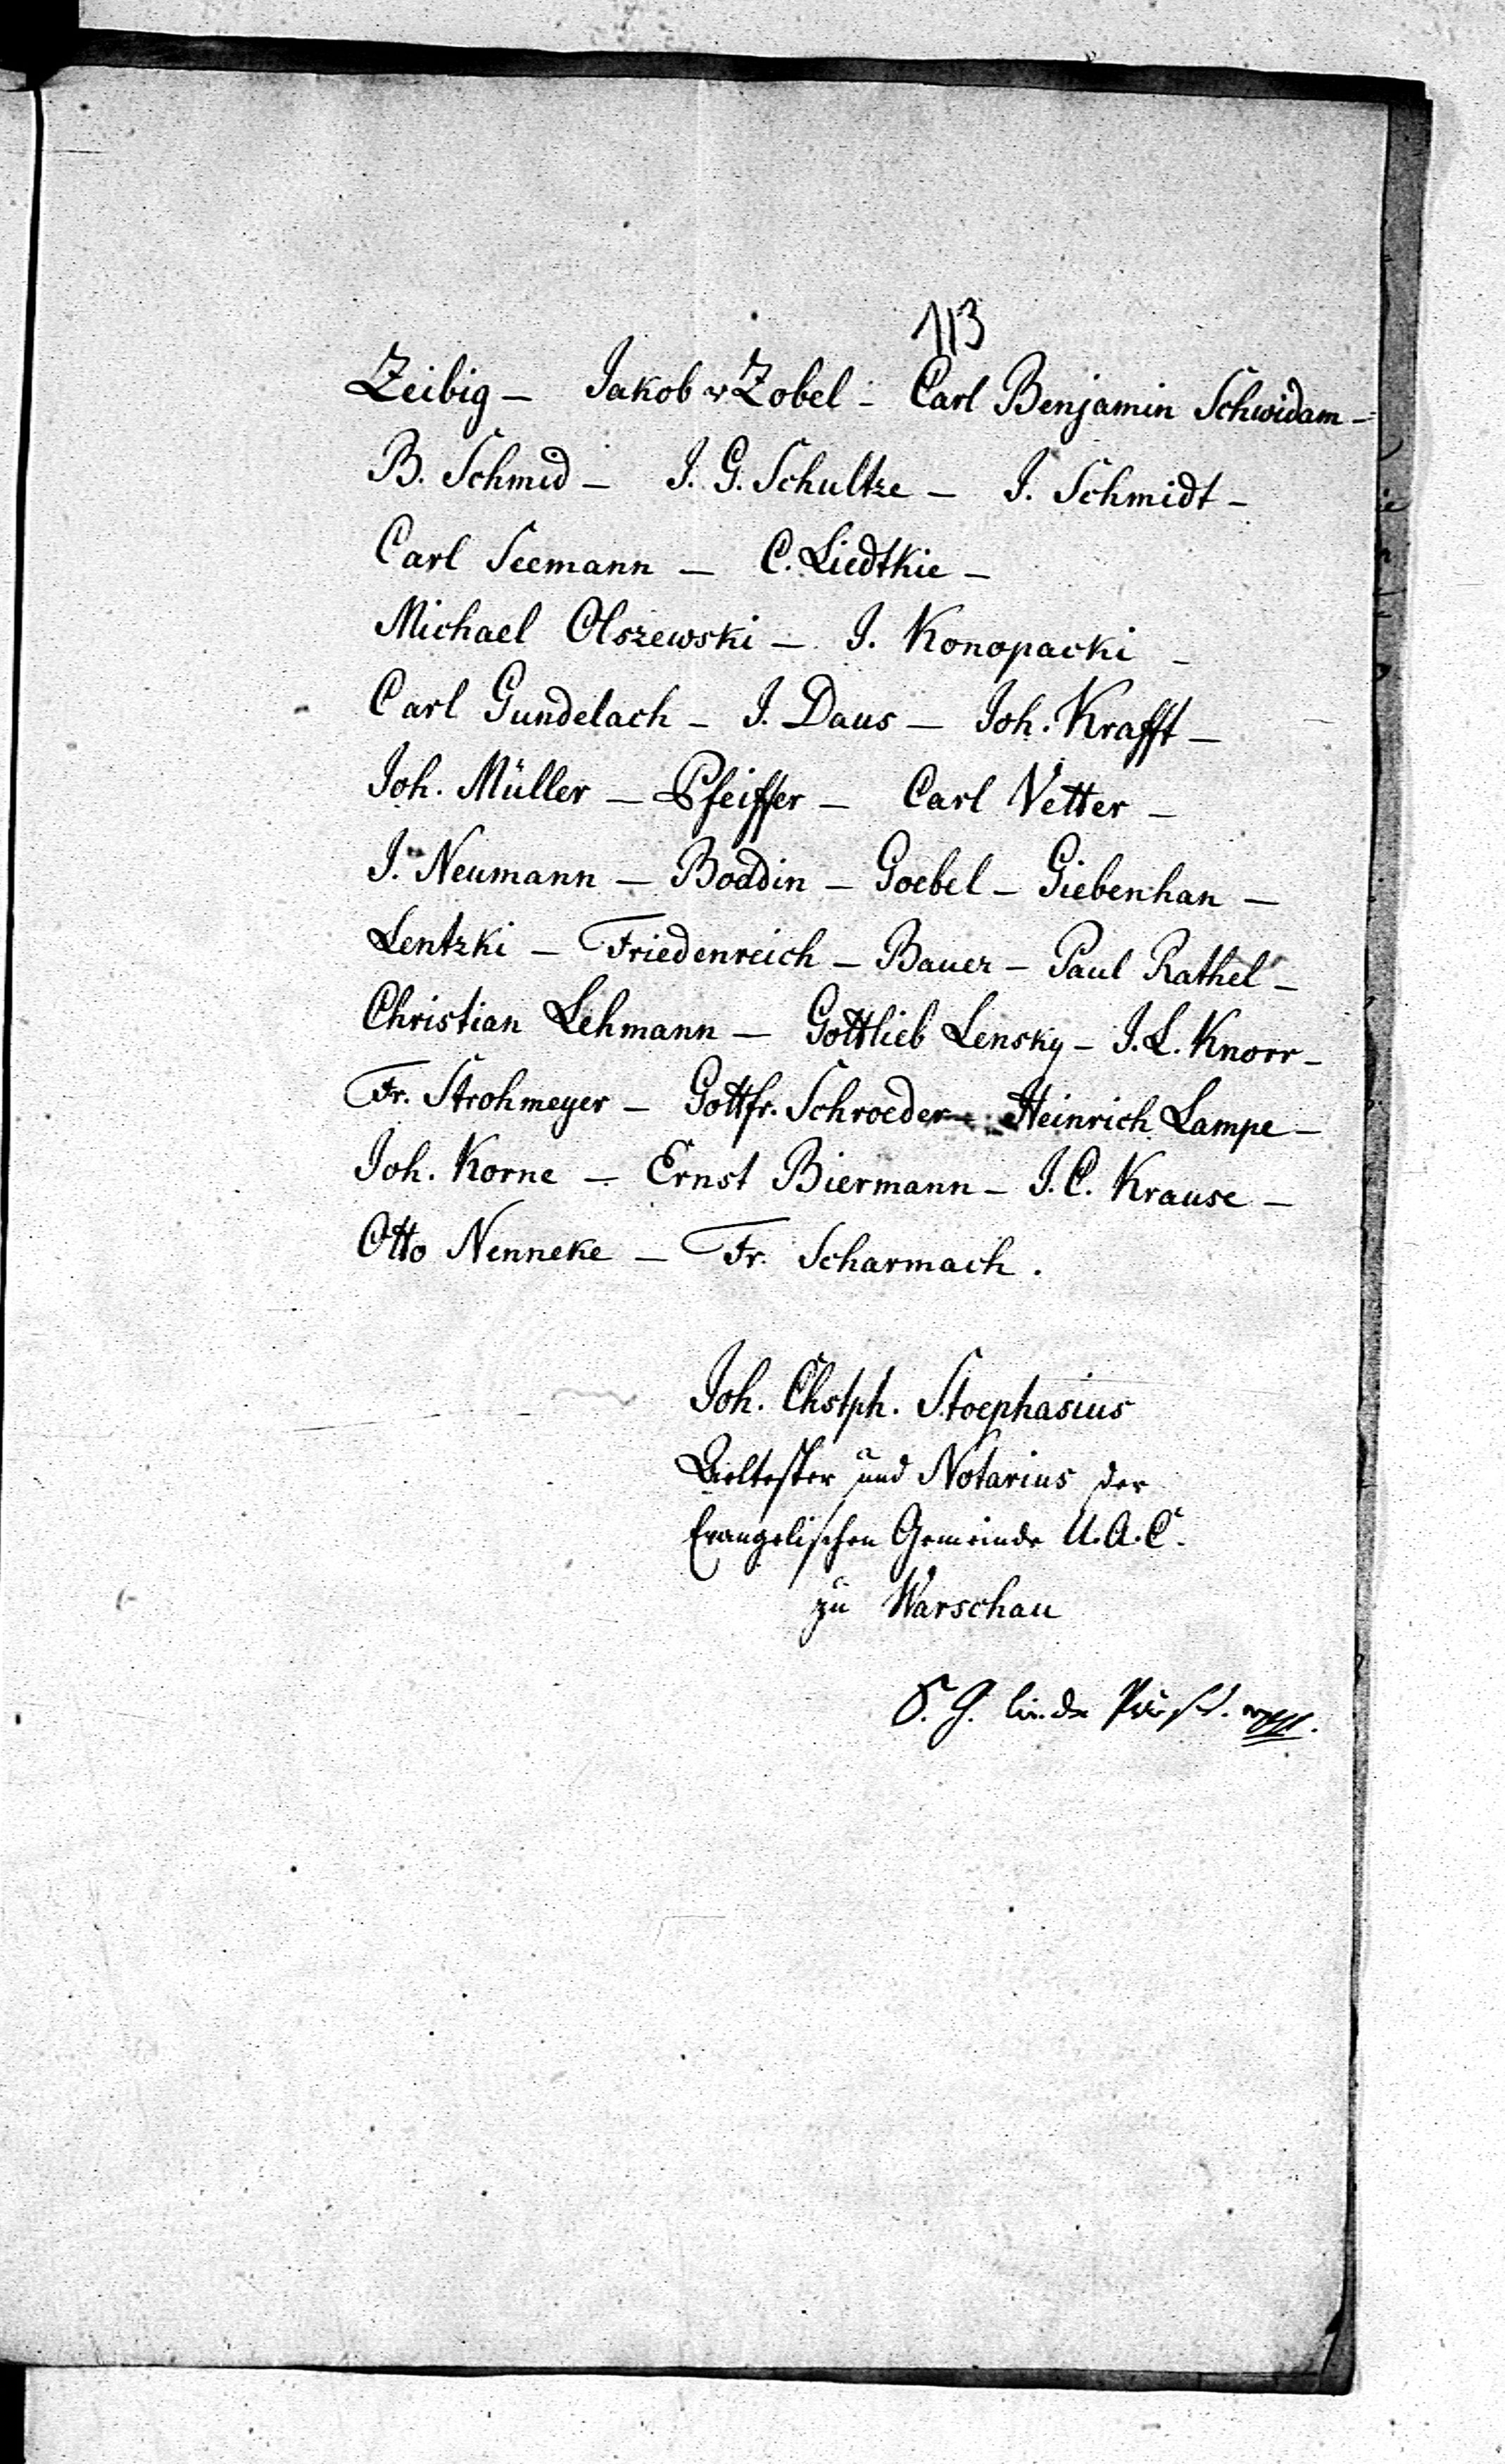 113
Zeibig – Jakob v Zobel – Carl Benjamin Schwidam –
B. Schmid – J. G. Schultze – J. Schmidt –
Carl Seemann – C. Liedtkie –
Michael Olszewski – J. Konopacki –
Carl Gundelach – J. Daus – Joh. Krafft –
Joh. Müller – Pfeiffer – Carl Vetter –
J. Neumann – Boddin – Goebel – Giebenhan –
Lentzki – Friedenreich – Bauer – Paul Rathel –
Christian Lehmann – Gottlieb Lensky – J. L. Knorr –
Fr. Strohmeyer – Gottfr. Schroeder – Heinrich Lampe –
Joh. Korne – Ernst Biermann – J. C. Krause –
Otto Nenneke – Fr. Scharmach.
Joh. Chstph. Stoephasius
Aeltester und Notarius der
Evangelischen Gemeinde U. A. C.
zu Warschau
S. G. Linde